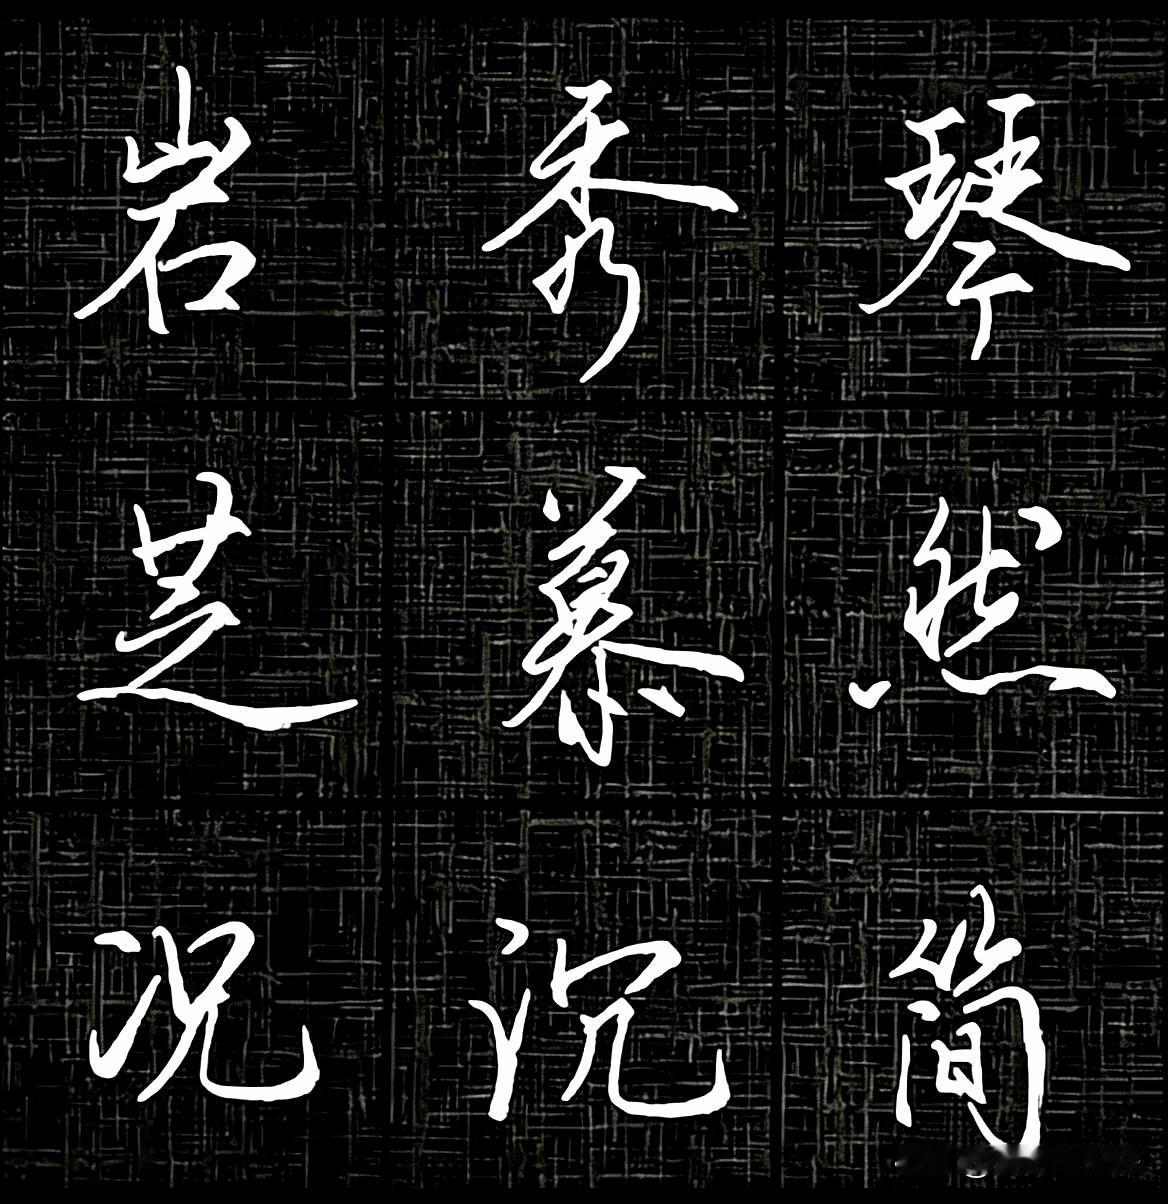 岩秀琴
芝慕然
况沉简